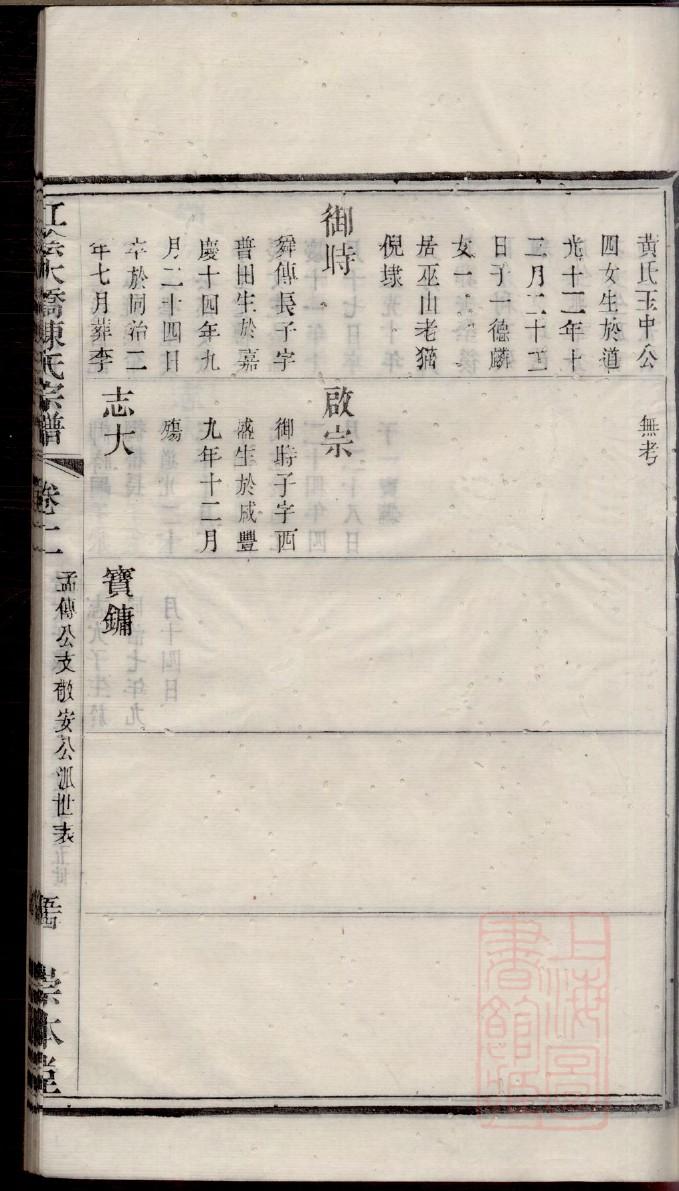 黃氏玉中公
四女生於道
光十二年十
二月二十三
日子一德麟
女一
居巫山老猫
倪埭
御時
舜傳長子字
普田生於嘉
慶十四年九
月二十四日
卒於同治二
年七月葬李
無考
啟宗
御時子字西
盛生於咸豐
九年十二月
殤
志大
寶鏞
江陰大橋陳氏宗譜
卷十二
孟傳公支敬安公派世表
宗本堂
上海圖書館藏